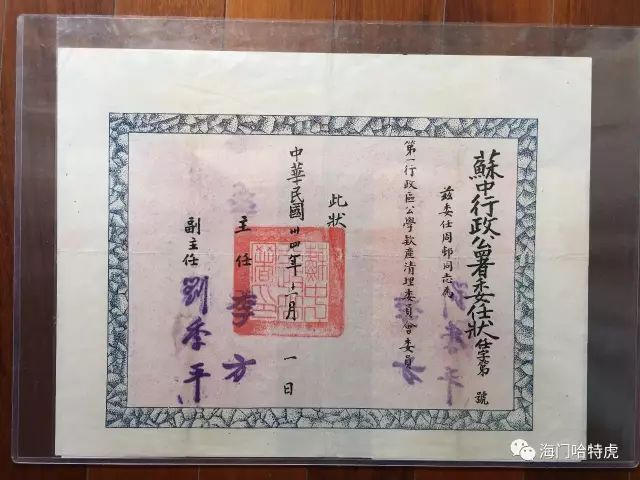 蘇中行政公署委任狀 任字第 號
茲委任周邨同志為
第一行政區公學款產清理委員會委員
此狀
主任 季方
副主任 劉季平
中華民國卅四年十一月一日
海门哈特虎